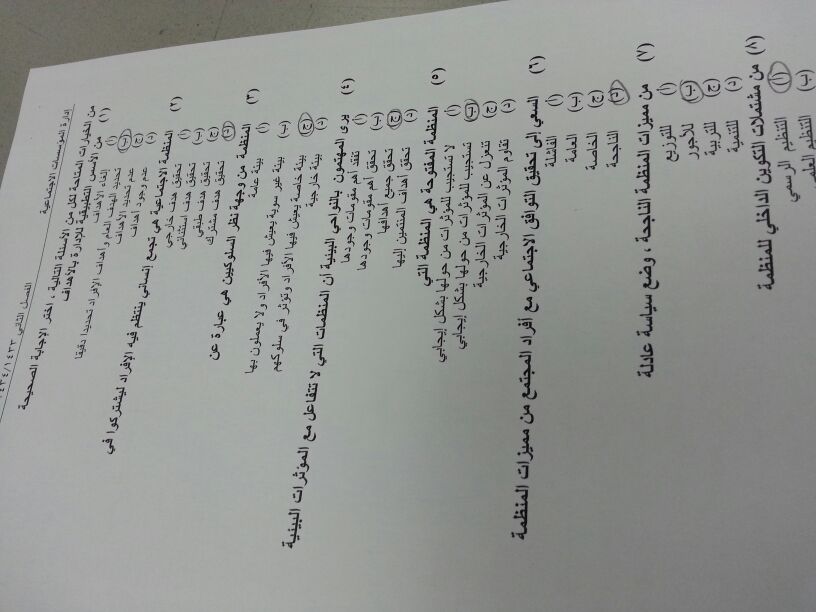 إدارة المؤسسات الاجتماعية
الفصل الثاني ١٤٣٤/١٤٣٣
من الخيارات المتاحة لكل من الأسئلة التالية ، اختر الإجابة الصحيحة
(١) من الأسس التطبيقية للإدارة بالأهداف
(أ) إلغاء الأهداف
(ب) تحديد الهدف العام وأهداف الأفراد تحديدا دقيقا
(ج) عدم تحديد الأهداف
(د) عدم وجود أهداف
(٢) المنظمة الاجتماعية هي تجمع إنساني ينتظم فيه الأفراد ليشتركوا في
(أ) تحقيق هدف خارجي
(ب) تحقيق هدف استثنائي
(ج) تحقيق هدف طبقي
(د) تحقيق هدف مشترك
(٣) المنظمة من وجهة نظر السلوكيين هي عبارة عن
(أ) بيئة عامة
(ب) بيئة غير سوية يعيش فيها الأفراد ولا يعملون بها
(ج) بيئة خاصة يعيش فيها الأفراد وتؤثر في سلوكهم
(د) بيئة خارجية
(٤) يرى المهتمون بالنواحي البيئية أن المنظمات التي لا تتفاعل مع المؤثرات البيئية
(أ) تفقد أهم مقومات وجودها
(ب) تحقق أهم مقومات وجودها
(ج) تحقق جميع أهدافها
(د) تحقق أهداف المنتمين إليها
(٥) المنظمة المفتوحة هي المنظمة التي
(أ) لا تستجيب للمؤثرات من حولها بشكل إيجابي
(ب) تستجيب للمؤثرات من حولها بشكل إيجابي
(ج) تنعزل عن المؤثرات الخارجية
(د) تقاوم المؤثرات الخارجية
(٦) السعي إلى تحقيق التوافق الاجتماعي مع أفراد المجتمع من مميزات المنظمة
(أ) الفاشلة
(ب) العامة
(ج) الخاصة
(د) الناجحة
(٧) من مميزات المنظمة الناجحة ، وضع سياسة عادلة
(أ) للتوزيع
(ب) للأجور
(ج) للتربية
(د) للتنمية
(٨) من مشتملات التكوين الداخلي للمنظمة
(أ) التنظيم الرسمي
(ب) التنظيم